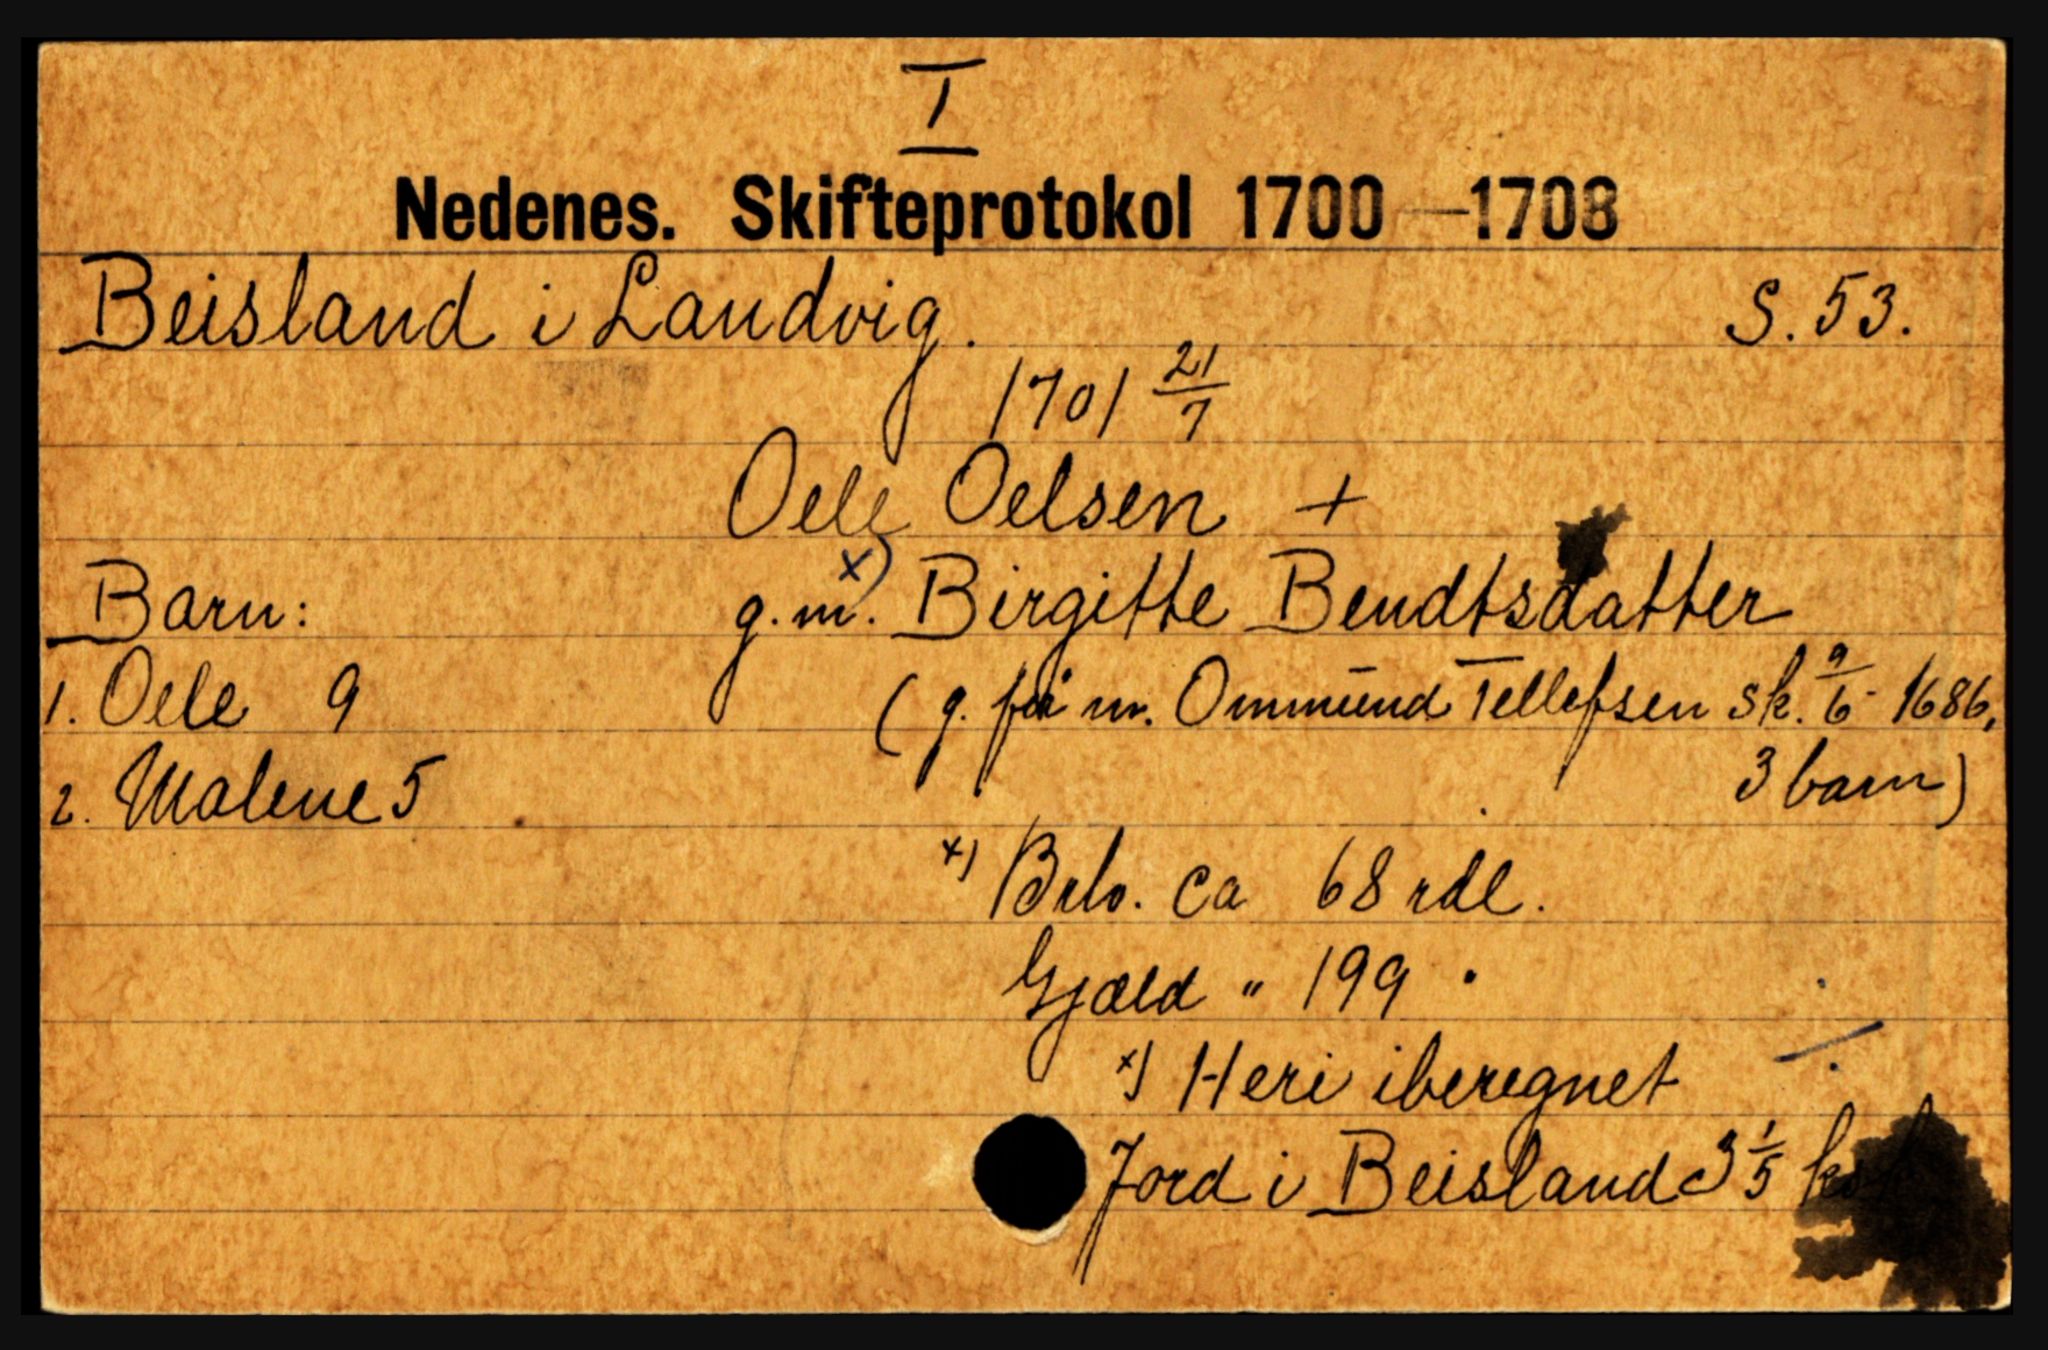 I
Nedenes. Skifteprotokol 1700—1708
Beisland i Landvig. S. 53.
1701 21/7
Oele Oelsen +
Barn: g. m. x) Birgitte Bendtsdatter
1. Oele 9 (g. før m. Ommund Tellefsen sk. 9/6 1686,
2. Malene 5 3 barn)
x) Brto. ca 68 rdl.
Gjæld " 199 "
x) Heri iberegnet
Jord i Beisland 3 1/5